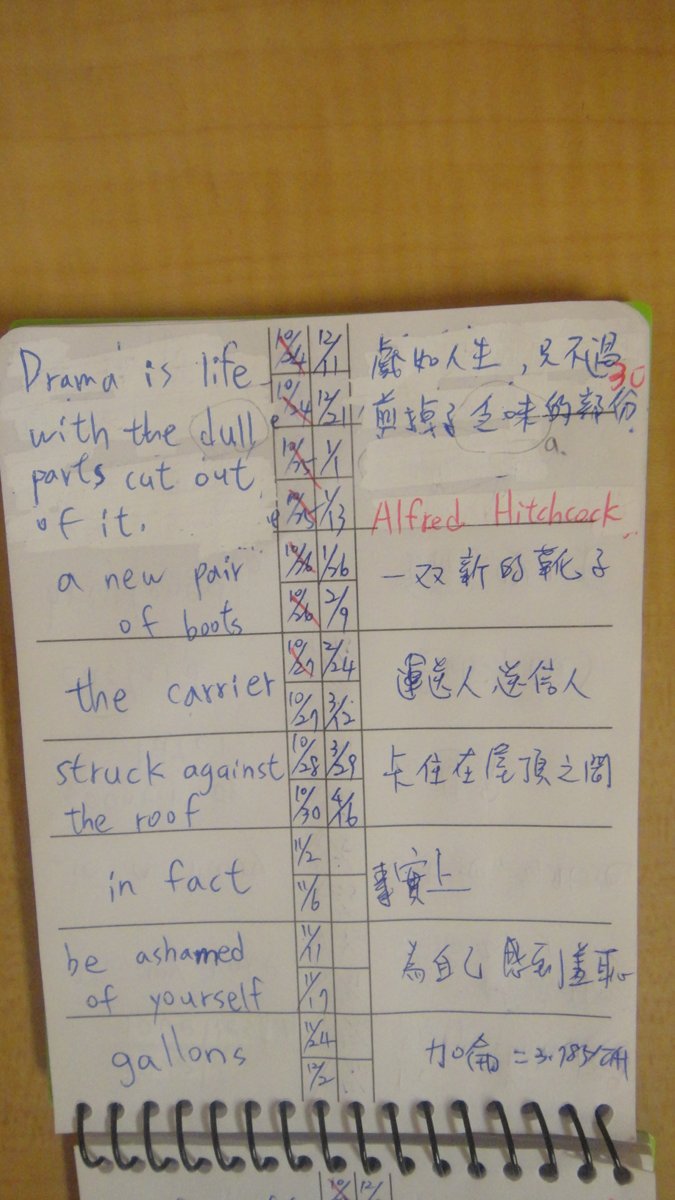 Drama is life
with the dull
parts cut out
of it.
a new pair
of boots
the carrier
struck against
the roof
in fact
be ashamed
of yourself
gallons
10/24 12/11
10/24 12/21
10/25 1/1
10/25 1/13
10/26 1/26
10/26 2/9
10/27 2/24
10/27 3/12
10/28 3/29
10/30 4/16
11/2
11/6
11/11
11/17
11/24
12/2
戲如人生，只不過
30
剪掉了乏味的部份.
a.
Alfred Hitchcock
一双新的靴子
運送人 送信人
卡住在屋頂之間
事實上
為自己感到羞恥
加侖 = 3.785